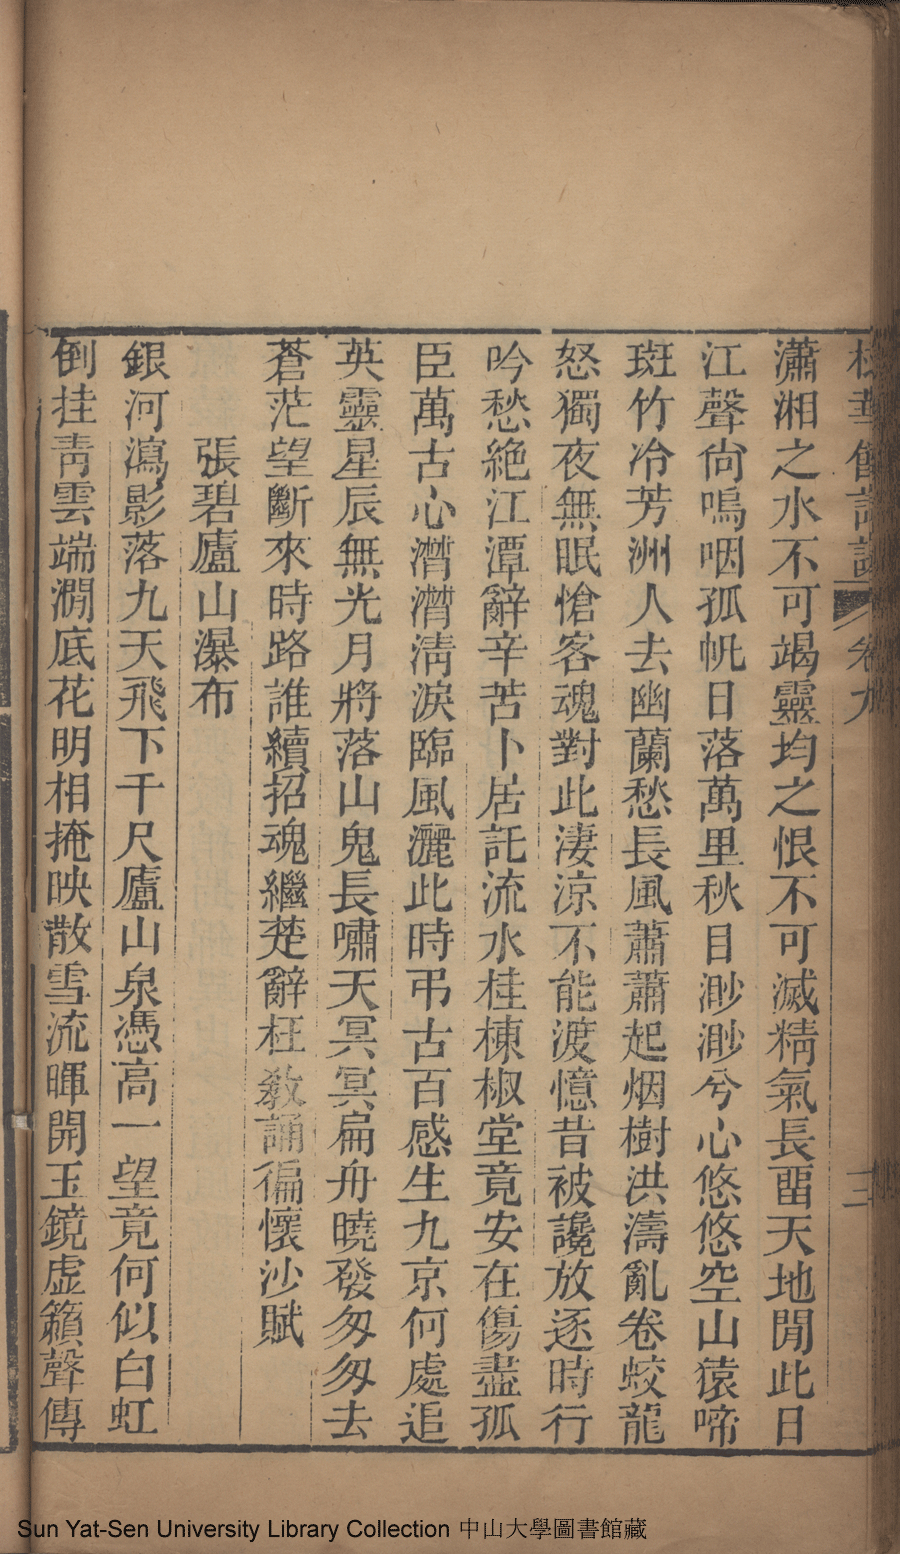 館詩課 卷九
瀟湘之水不可竭靈均之恨不可滅精氣長畱天地閒此日
江聲尙嗚咽孤帆日落萬里秋目渺渺兮心悠悠空山猿啼
斑竹冷芳洲人去幽蘭愁長風蕭蕭起烟樹洪濤亂卷蛟龍
怒獨夜無眠愴客魂對此淒涼不能渡憶昔被讒放逐時行
吟愁絕江潭辭辛苦卜居託流水桂棟椒堂竟安在傷盡孤
臣萬古心潸潸淸淚臨風灑此時弔古百感生九京何處追
英靈星辰無光月將落山鬼長嘯天冥冥扁舟曉發匆匆去
蒼茫望斷來時路誰續招魂繼楚辭枉敎誦徧懷沙賦
張碧廬山瀑布
銀河瀉影落九天飛下千尺廬山泉憑高一望竟何似白虹
倒挂靑雲端澗底花明相掩映散雪流暉開玉鏡虛籟聲傳
Sun Yat-Sen University Library Collection 中山大學圖書館藏